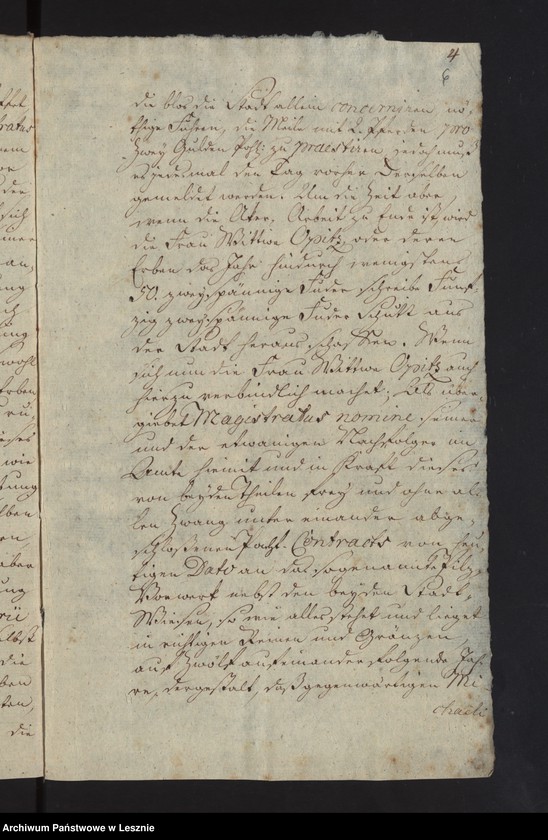 4
6
die blos die Stadt allein concerniren nö-
thige Fuhren, die Meile mit 2. Pferden pro
Zwey Gulden Pohl: zu praestiren, jedoch muß
es jedesmal den Tag vorher Derselben
gemeldet werden. Um die Zeit aber,
wenn die Aker-Arbeit zu Ende ist, wird
die Frau Wittwe Opitz, oder deren
Erben das Jahr hindurch wenigstens
50. zweyspännige Fuder schreibe Funf-
zig zweyspännige Fuder Schutt aus
der Stadt heraus schaffen. Wenn
sich nun die Frau Wittwe Opitz auch
hierzu verbindlich machet; Als über-
giebet Magistratus nomine seiner
und der etwanigen Nachfolger im
Amte hiemit und in Kraft dieses
von beyden Theilen frey und ohne al-
len Zwang unter einander abge-
schloßenen Pacht-Contracts von heu-
tigen Dato an das sogenannte
Vorwerk nebst den beyden Stadt-
Wiesen, so wie alles stehet und lieget
in richtigen Reinen und Gränzen
auf Zwölf aufeinander folgende Jah-
re, dergestalt, daß gegenwärtigen Mi-
chaeli
die
Archiwum Państwowe w Lesznie